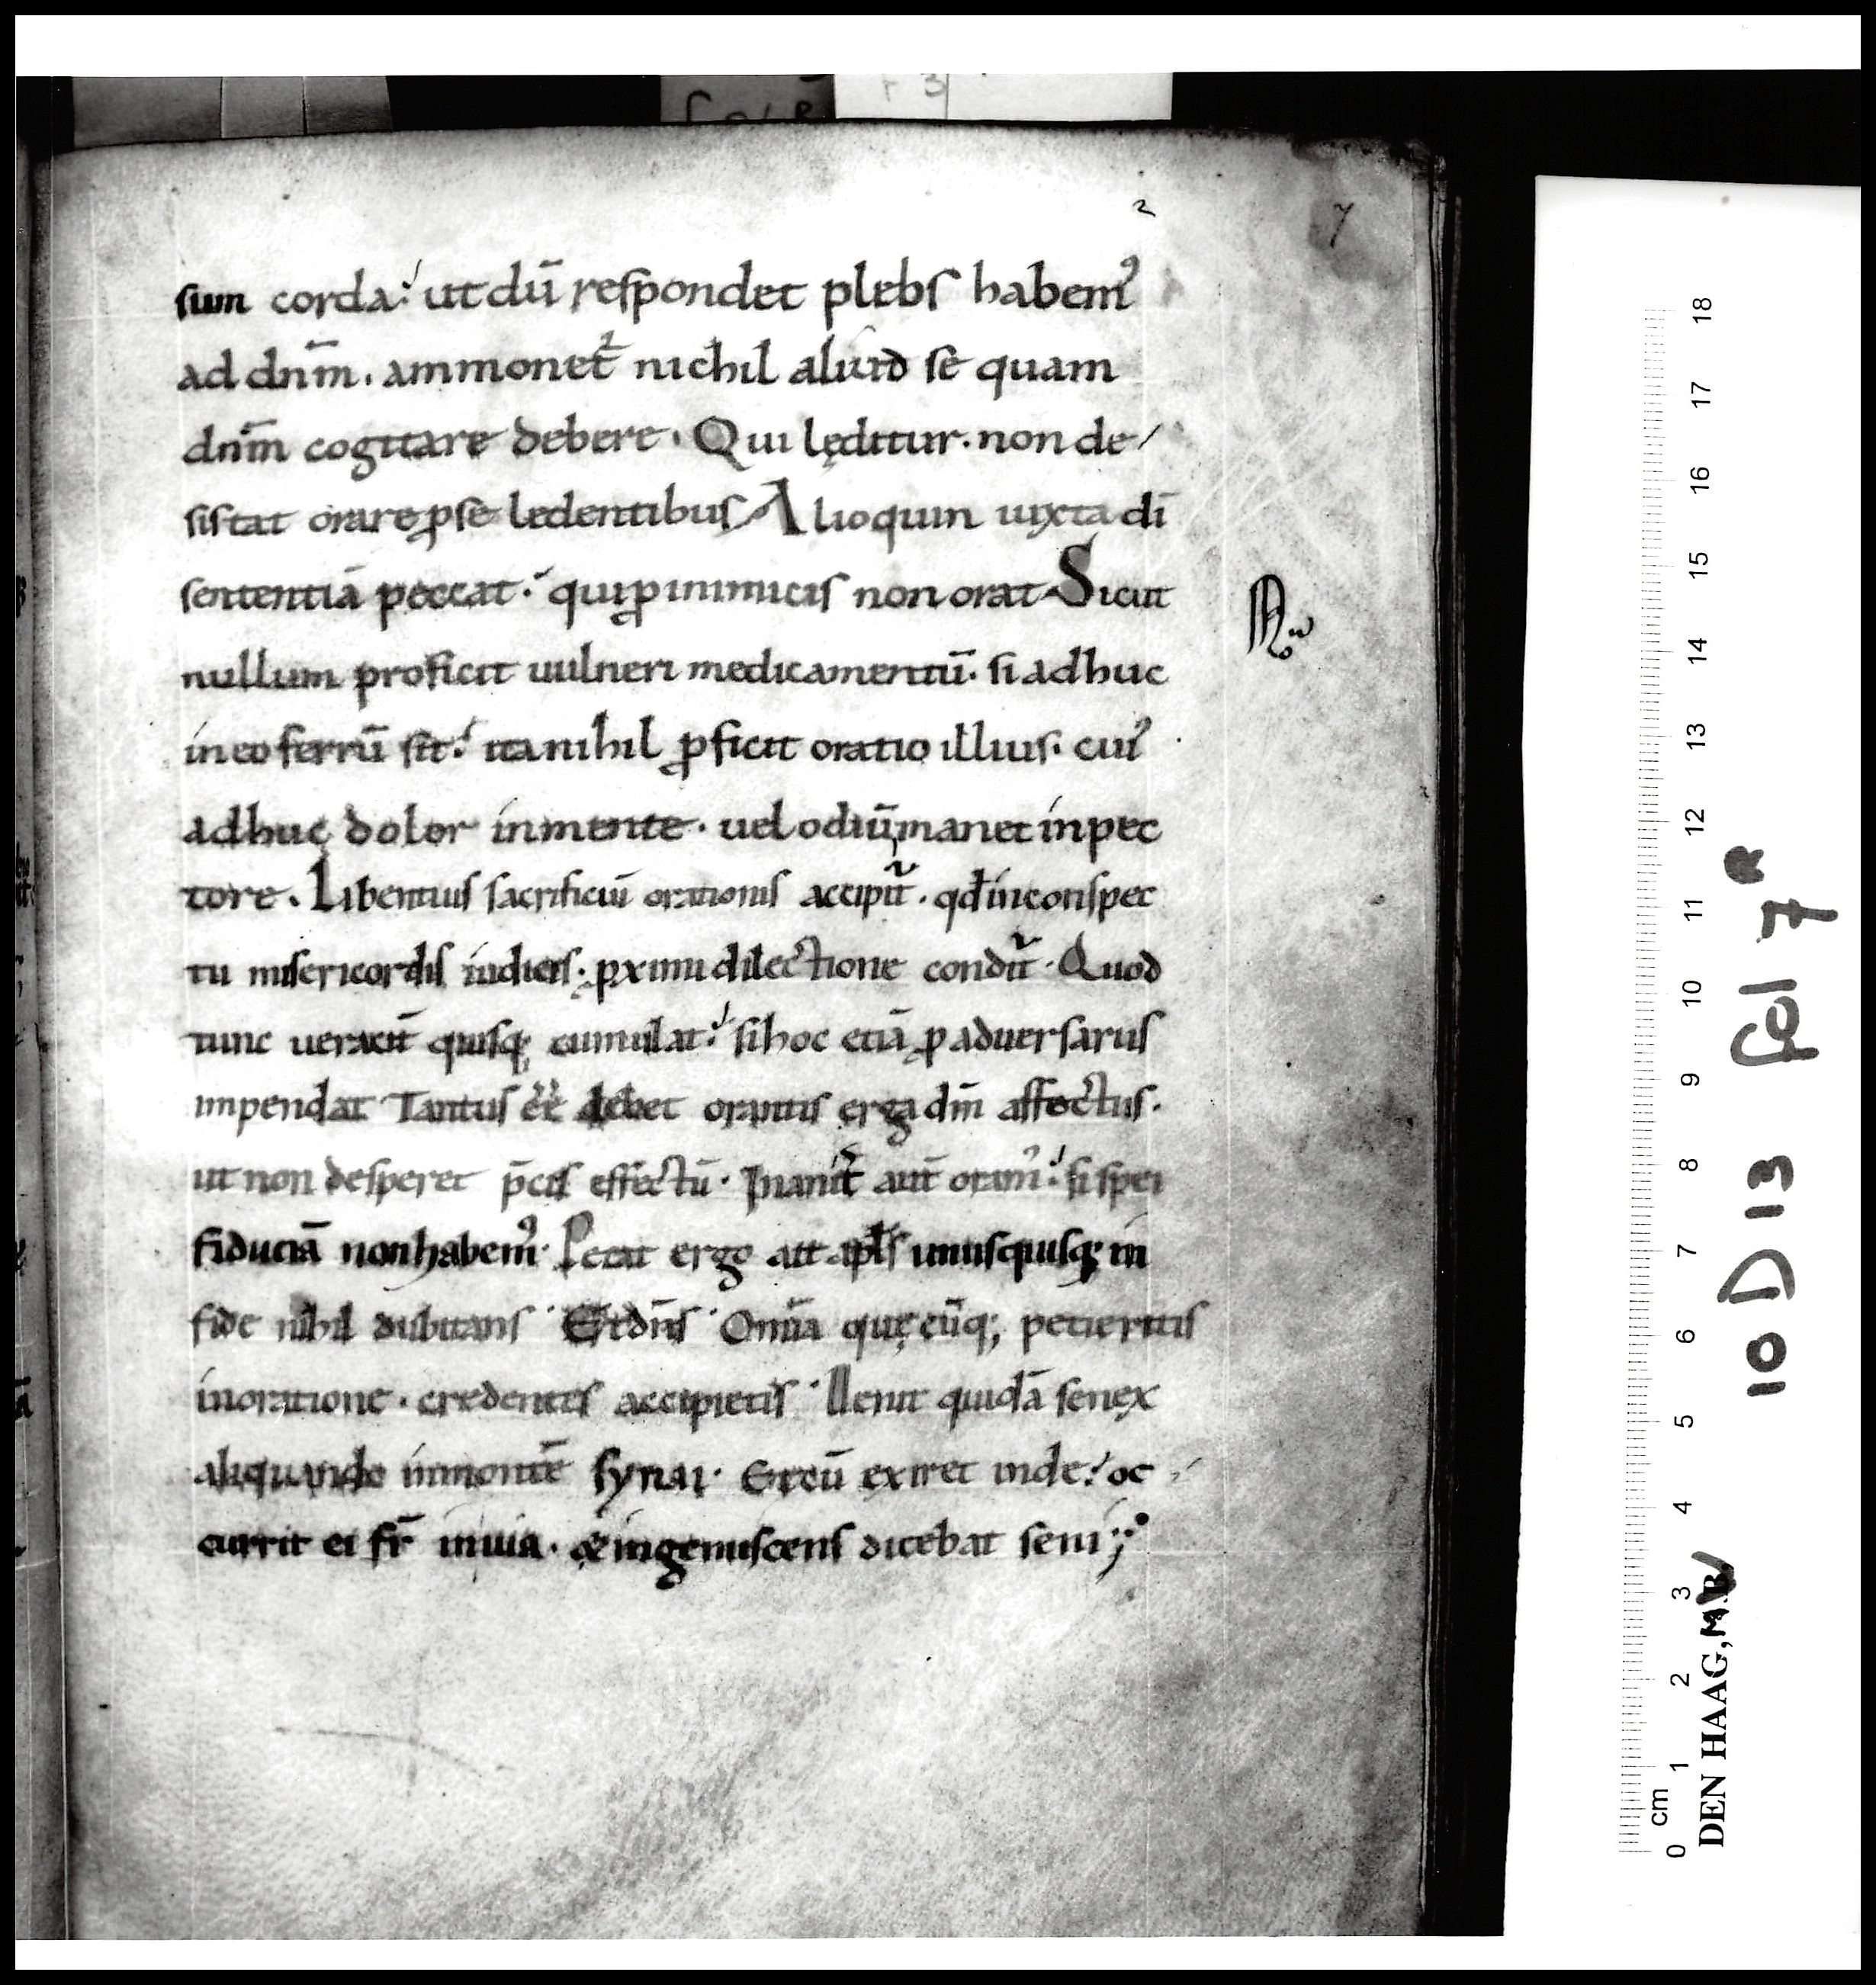 2
7
sum corda. ut dū respondet plebs habem᾿
ad dnm̄. ammonet᷑ nichil aliud se quam
dnm̄ cogitare debere. Qui lęditur. non de/
sistat orare ꝓ se ledentibus. Alioquin iuxta dī
sententiā peccat. qui ꝓ inimicis non orat. Sicut
nullum proficit uulneri medicamentū. si adhuc
in eo ferrū sit. ita nihil ꝓficit oratio illius. cui᾿
adhuc dolor in mente. uel odiū manet in pec
tore. Libentius sacrificiū orationis accipit᷑. qd̄ in conspec
tu misericordis iudicis. pximi dilectione condit᷑. Quod
tunc ueracit̄ quisq; cumulat. si hoc etiā ꝓ aduersariis
impendat Tantus ēē debet orantis erga dm̄ affectus.
ut non desperet p̄cis effectū. Inanit̄ aut̄ oram᾿. si spei
fiduciā non habem᾿. Petat ergo ait apls̄ unusquisq; in
fide nihil dubitans. Et dn̄s. Omīa quęcūq; petieritis
in oratione. credentes accipietis. Uenit quidā senex
aliquando in montē synai. Et cū exiret inde. oc
currit ei fr̄ in uia. & ingemiscens dicebat seni;
18
17
16
15
14
13
12
11
10
9
8
7
6
5
4
3
2
1
0
cm
DEN HAAG, M.B
10 D 13 fol 7 R